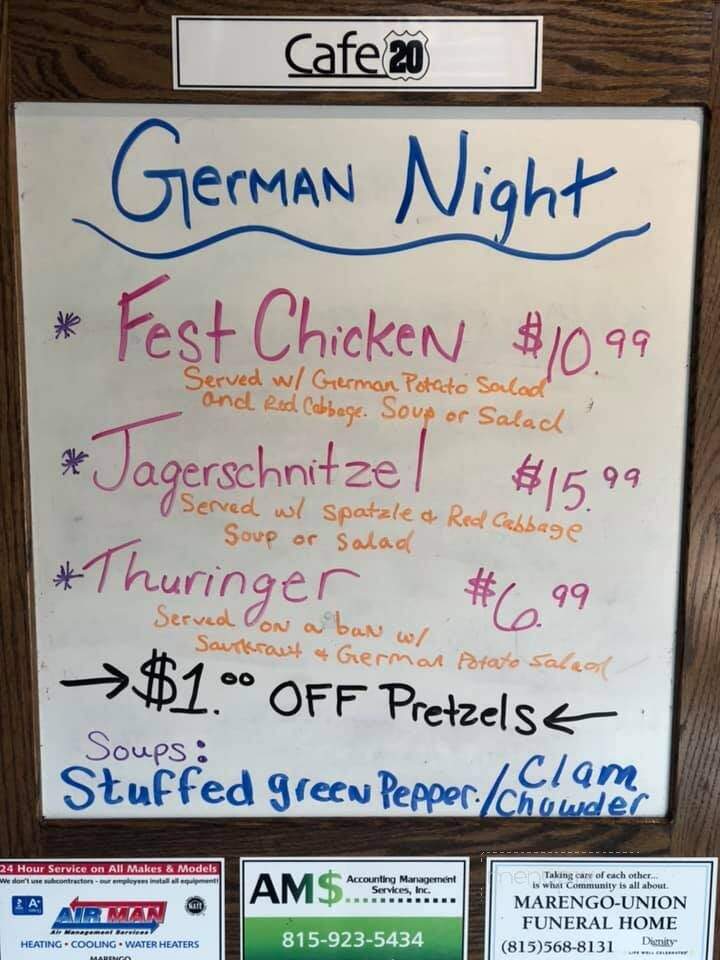 Cafe 20
German Night
* Fest Chicken $10.99
Served w/ German Potato Salad
and Red Cabbage. Soup or Salad
* Jagerschnitzel $15.99
Served w/ Spatzle & Red Cabbage
Soup or Salad
* Thuringer $6.99
Served on a bun w/
Saurkraut & German Potato Salad
→ $1.00 OFF Pretzels ←
Soups:
Stuffed green Pepper / Clam Chowder
24 Hour Service on All Makes & Models
We don't use subcontractors - our employees install all equipment!
A+
NATE
AIR MAN
Air Management Services
HEATING • COOLING • WATER HEATERS
MARENGO
AM$ Accounting Management
Services, Inc.
815-923-5434
Taking care of each other...
is what Community is all about.
MARENGO-UNION
FUNERAL HOME
(815)568-8131 Dignity
LIFE WELL CELEBRATED